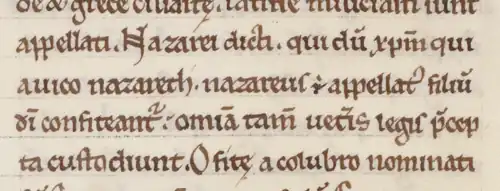 appellati. Nazarei dicti. qui dū xpm̄ qui
a uico nazareth. nazareus ē appellat᷒ filiū
dī confiteant᷑. omīa tam̄ uet̄is legis p̄cep
ta custodiunt. Ofitę a colubro nominati